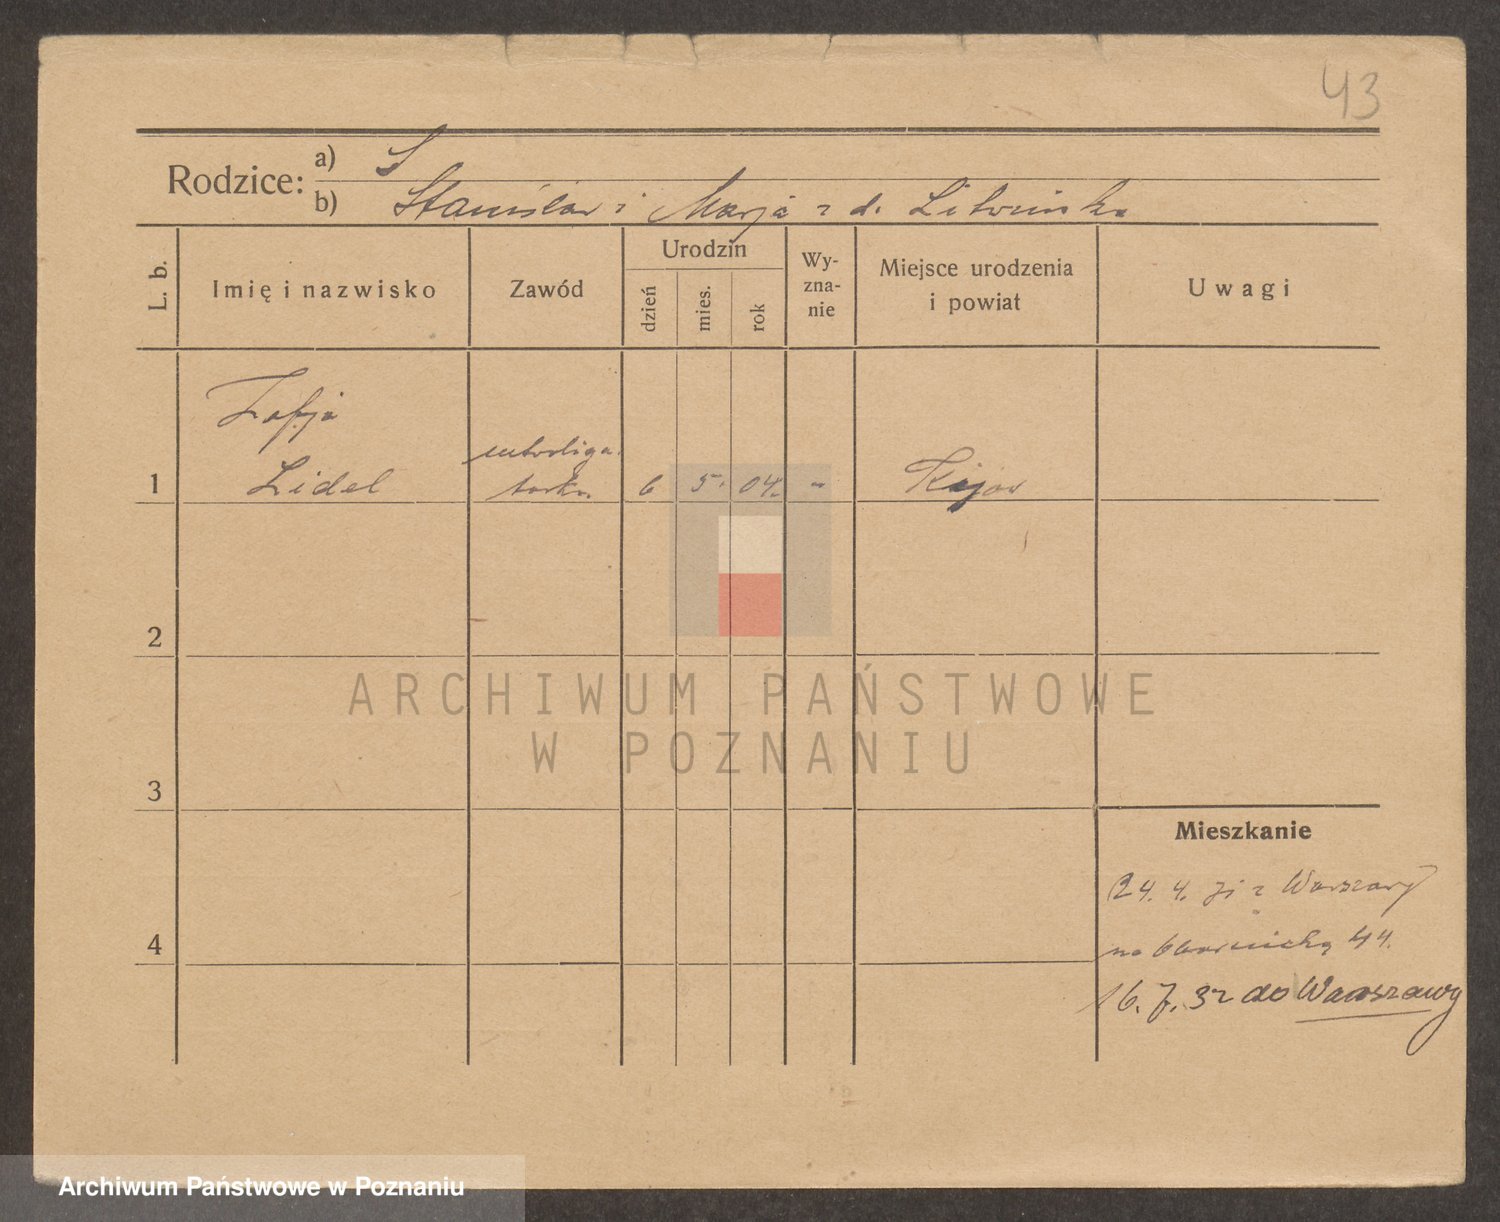 43
Rodzice:
a) S
b) Stanisław i Marja z d. Litwińska
L. b.
Imię i nazwisko
Zawód
Urodzin
dzień
mies.
rok
Wy-
zna-
nie
Miejsce urodzenia
i powiat
Uwagi
Zofja
introliga-
1 Lidel torka 6 5. 04. - Kijów
2
3
4
Mieszkanie
24. 4. 31 z Warszawy
na Obornicką 44.
16. 7. 32 do Warszawy
ARCHIWUM PAŃSTWOWE
W POZNANIU
Archiwum Państwowe w Poznaniu